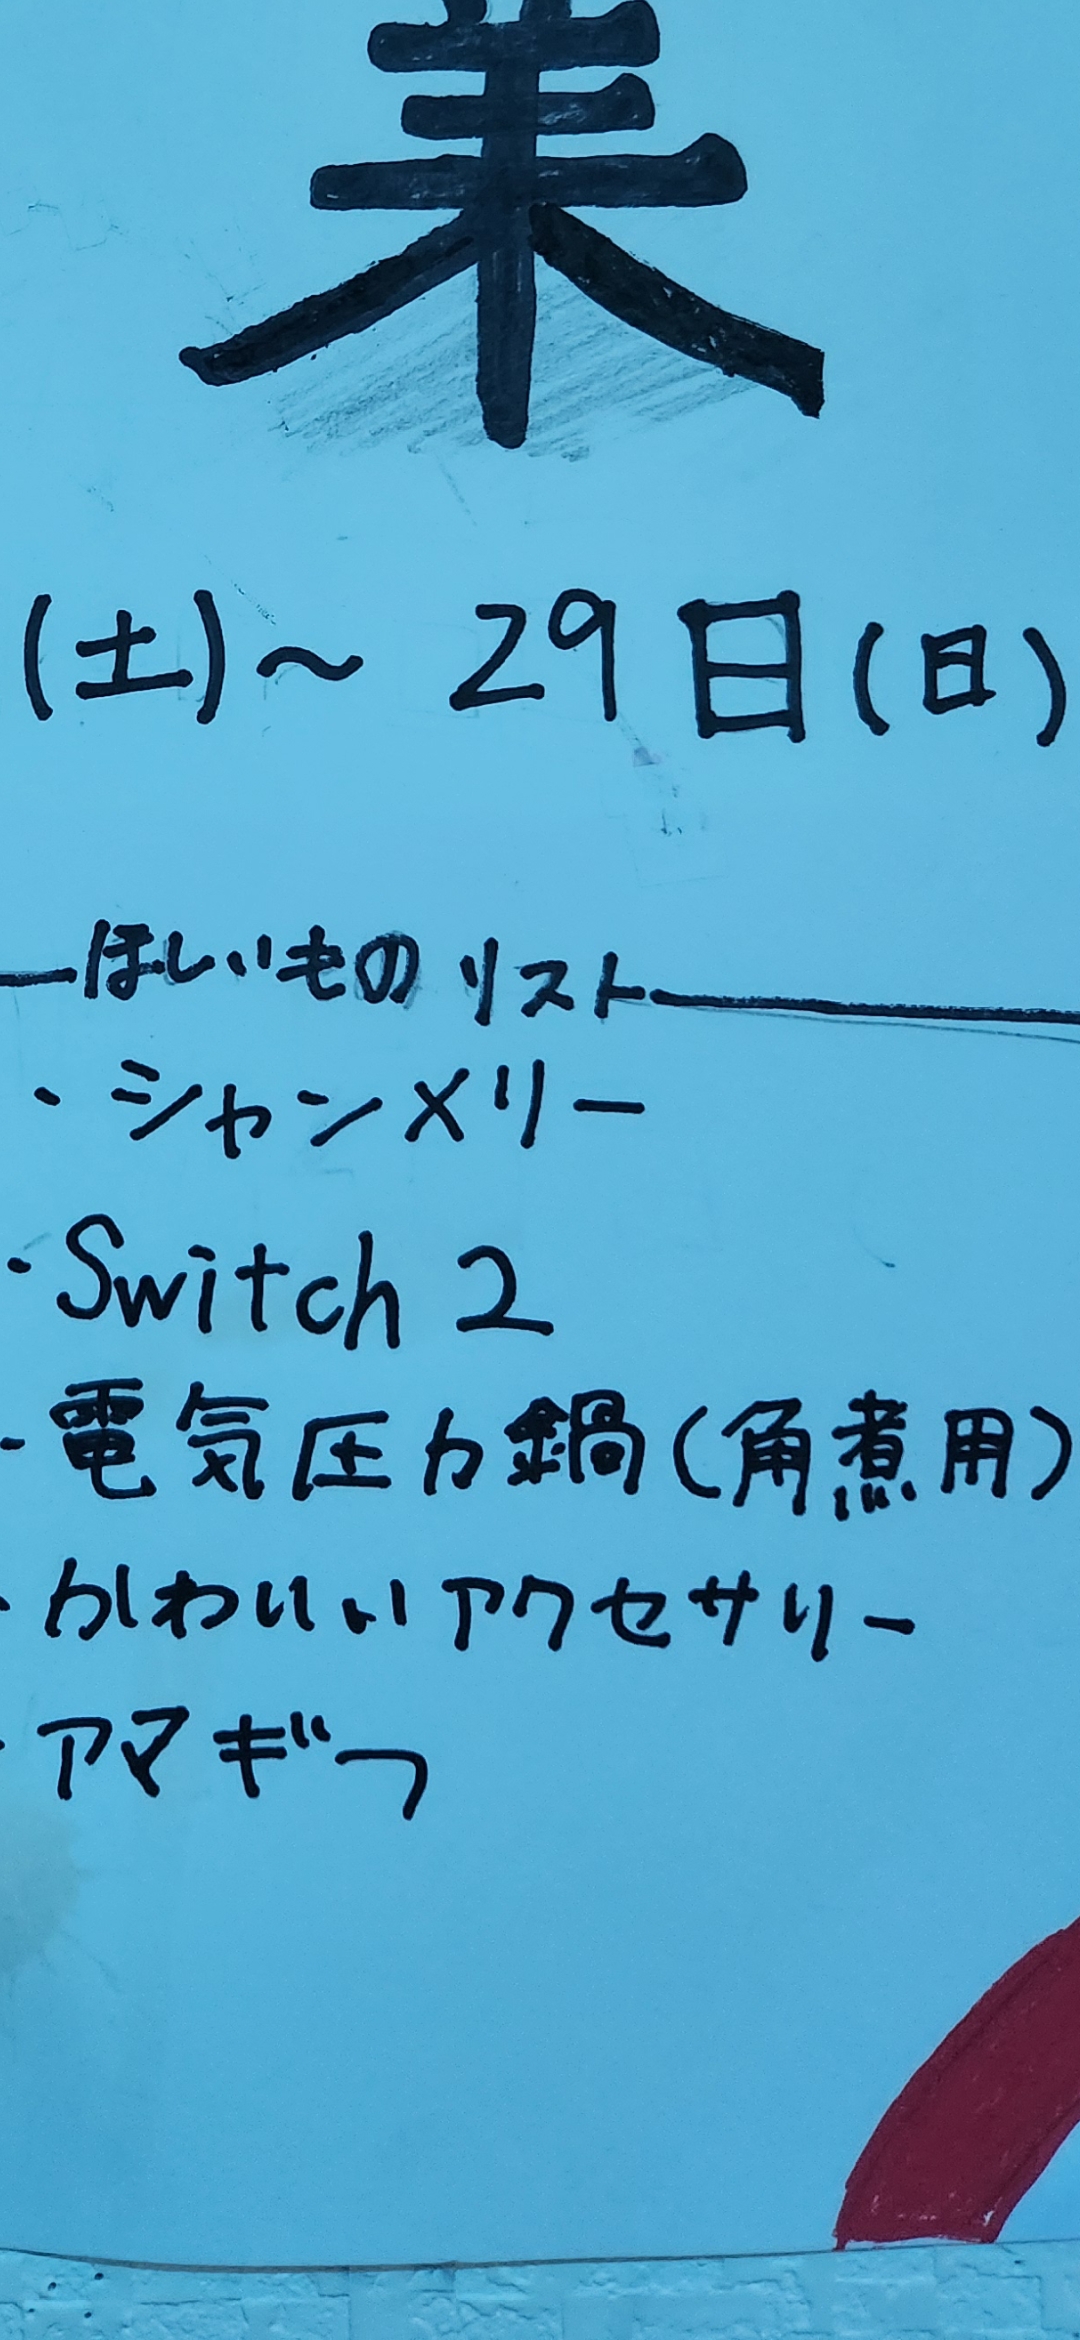 業
(土)～ 29日(日)
ほしいものリスト
・シャンメリー
・Switch 2
・電気圧力鍋(角煮用)
・かわいいアクセサリー
・アマギフ